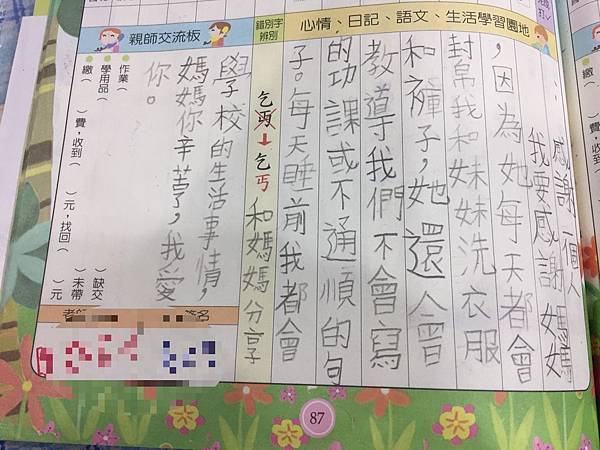 心情、日記、語文、生活學習園地
錯別字
辨別
親師交流板
：感謝一個人
我要感謝媽媽
，因為她每天都會
幫我和妹妹洗衣服
和褲子，她還會
教導我們不會寫
的功課或不通順的句
子。每天睡前我都會
乞丐→乞丐
和媽媽分享
學校的生活事情，
媽媽你辛苦了，我愛
你。
作業（ ）缺交
學用品（ ）未帶
繳（ ）費，收到（ ）元，找回（ ）元
簽名
87